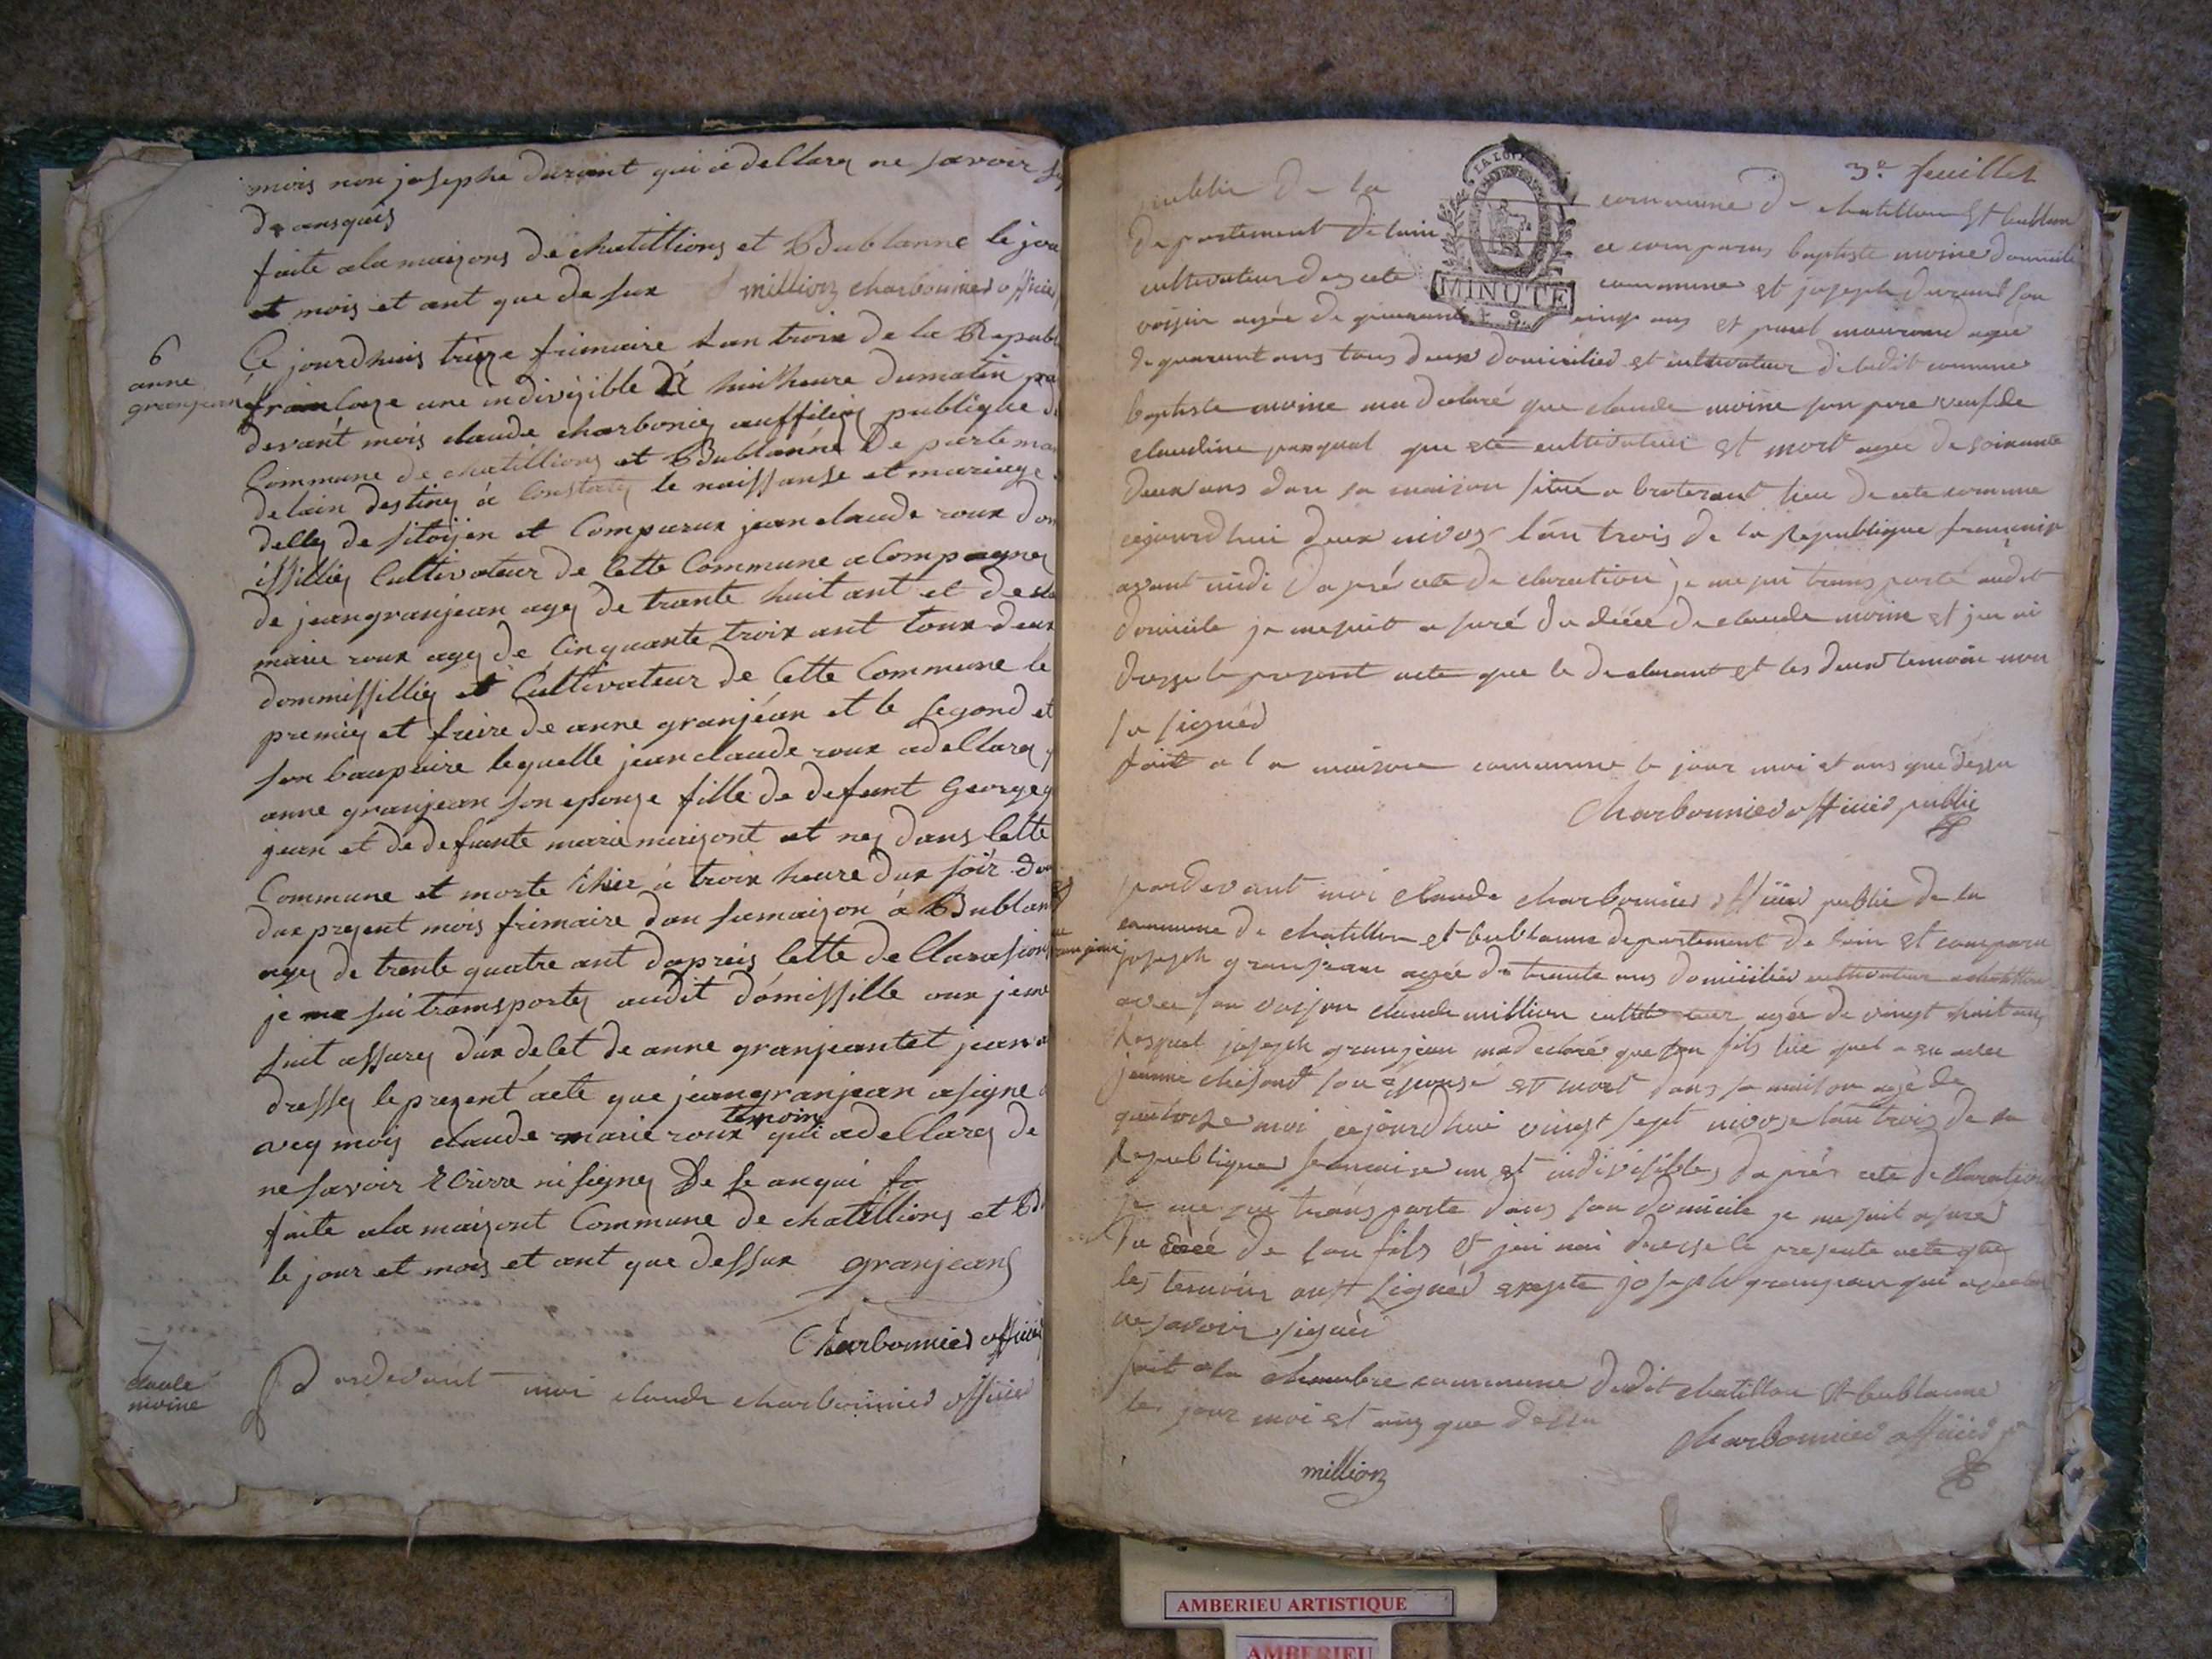 mois non josephe durant qui a dellarey ne savoir
de ansquis
faite ala maizons de chatillions et Bublanne le jou
et mois et ant que de sur millionz charbonnier officier
6
anne
granjean
Ce jourdhuis trieze frimaire lan troix de la Republ
franloize une indivizible a huit heure du matin pa
devant mois claude charboniey auffisiey publique de
Commune de chatillions et Bublanne De partema
delain destiney a Constatey le naissanse et mariage
delley de sitoijen et Comparux jean claude roux dom
issilliey Cultivateur de Cette Commune aCompagney
de jean granjean agey de trante huit ant et de cla
marie roux agey de Cinquante troix ant toux deux
dommissilliey et Cultivateur de Cette Commune le
premiey et fraire de anne granjean et le segond et
son baupaire lequelle jean claude roux adellarey
anne granjean son epouze fille de defunt Georgey
jean et de defunte marie maizont et ney dans Cette
Commune et morte hier a troix heure dux soir
dux prezent mois frimaire dan samaizon a Bublan
agey de trente quatre ant dapreis Cette dellarasion
je me sui transportey audit domissille oux je me
suit assurey dux delet de anne granjeantet jean a
dressey le prezent acte que jean granjean asigne
avey mois claude marie roux temoin qui adellarey de
ne savoir Ecrirre ni signey De se anqui
faite ala maizont Commune de chatillions et B
le jour et mois et ant que dessux granjeans
Charbonnier officier
7
claude
moine
Pardevant moi claude charbonnier officier
3e feuillet
LA LOI
MINUTE
public de la commune de chatillon et bublane
departement de lain ce comparus baptiste moine domicilié
cultivateur de cete commune et joseph durand son
voisin agée de quarante cinq ans et paul mairand agée
de quarant ans tous deux domicilied et cultivateur de ladit comune
baptiste moine ma declaré que claude moine son pere veuf de
claudine pasqual que ete cultivateur et mort agée de soixante
deux ans dan sa maison situé a broterant lieu de cete comune
cejourdhui deux nivos lan trois de la republique francaise
avant midi dapré cete declaration je me sui transporté audit
domicile je me suit a suré du décé de claude moine et jen ai
dressé le present acte que le declarant et les deux temoin non
su signed
fait a la maison commune le jour moi et ans que dessu
Charbonnier officier public
pardevant moi claude charbonnier officier public de la
commune de chatillon et bublanne departement de lain et comparu
joseph granjean agée de trante ans domicilied cultivateur a chatillon
avec son voison claude million cultivateur agée de vingt huit ans
lesquel joseph granjean ma declaré que son fils lie quel a eu avec
jeanne son epouse et mort dans sa maison agé de
quatorze moi cejourdhui vingt sept nivose lan trois de la
republique francaise un et indivisible dapré cete declaration
je me sui transporte dans son domicile je me suit asuré
du décé de son fils et jen nai dressé le presente acte que
les temoin onst signed exepte joseph granjean qui a declaré
ne savoir signéé
fait a la chambre commune dudit chatillon et bublanne
les jour moi et ans que dessu
charbonnier officier p
millionz
AMBERIEU ARTISTIQUE
AMBERIEU